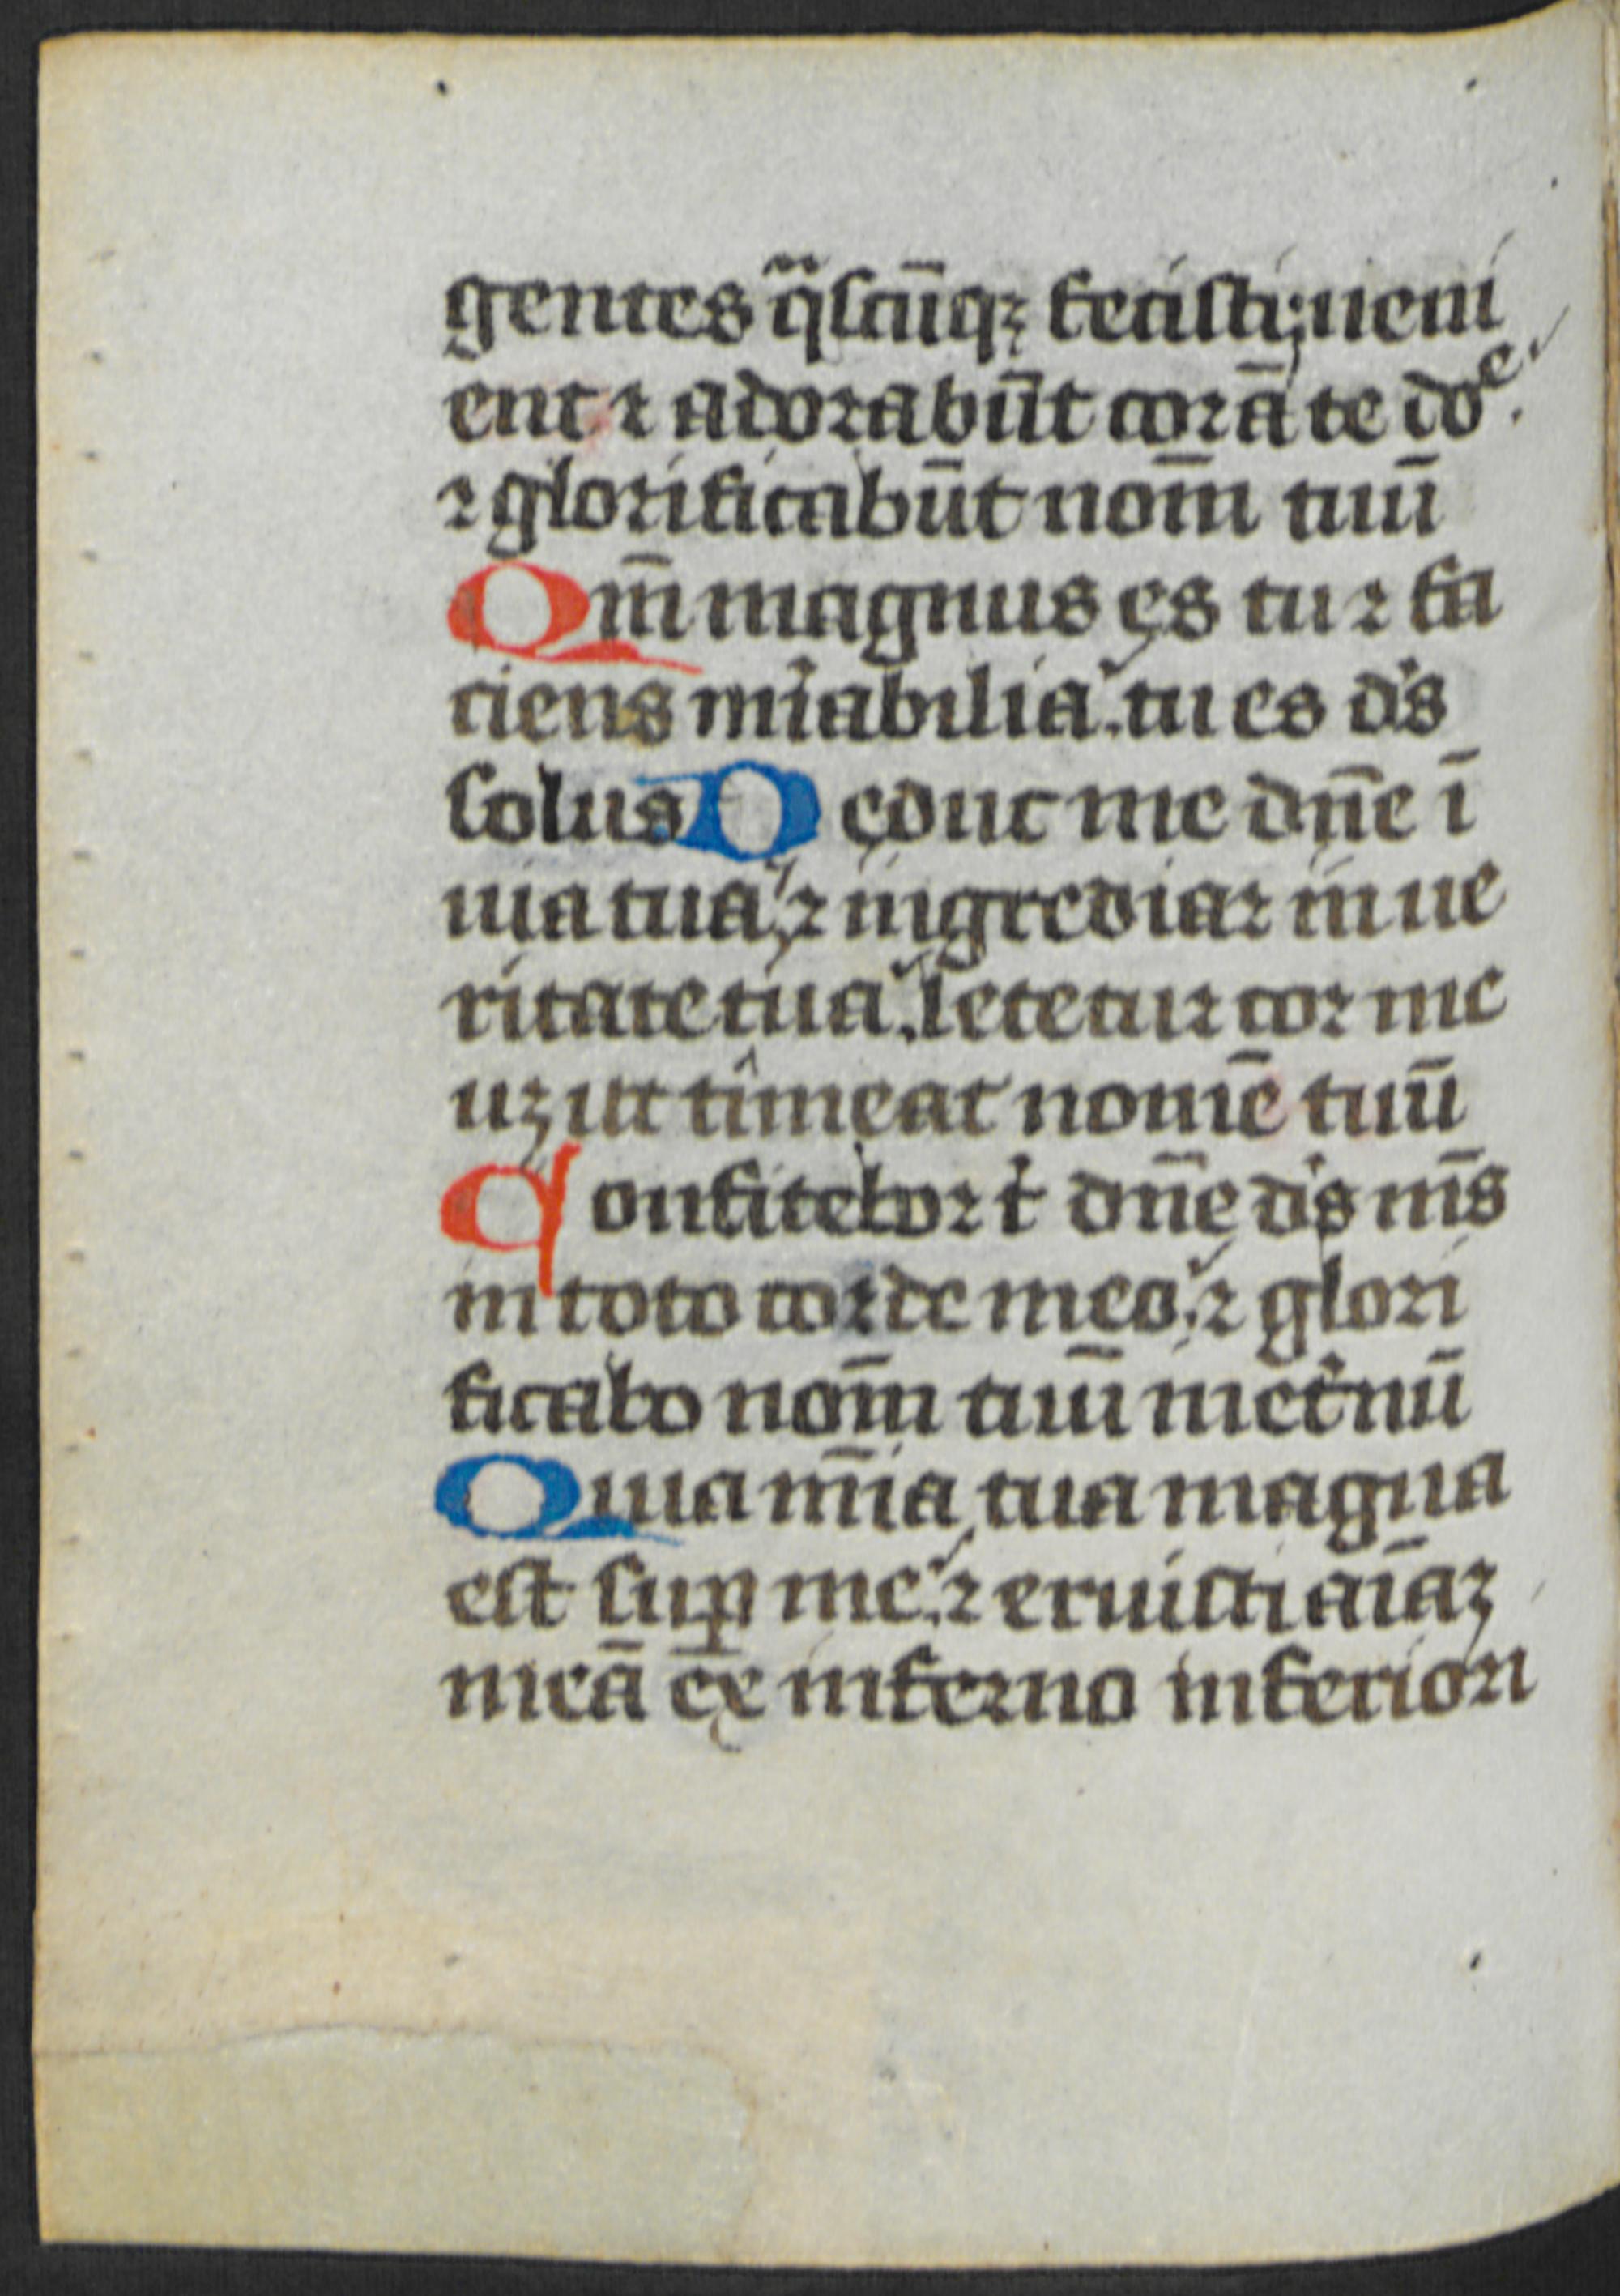 gentes q̄scūqꝫ fecisti ueni
ent ⁊ adorabūt corā te doᵉ.
⁊ glorificabūt nom̄ tuū
Qm̄ magnus es tu ⁊ fa
ciens mi͛abilia. tu es d's
solus D educ me dn̄e ī
uia tua ⁊ ingrediar in ue
ritate tua. letetur cor me
uꝫ ut timeat nomē tuū
Confitebor t͛ dn̄e d's m̄s
in toto corde meo. ⁊ glori
ficabo nom̄ tuū inet͛nū
Quia mīa tua magna
est suꝑ me. ⁊ eruisti aīaꝫ
meā ex inferno inferiori